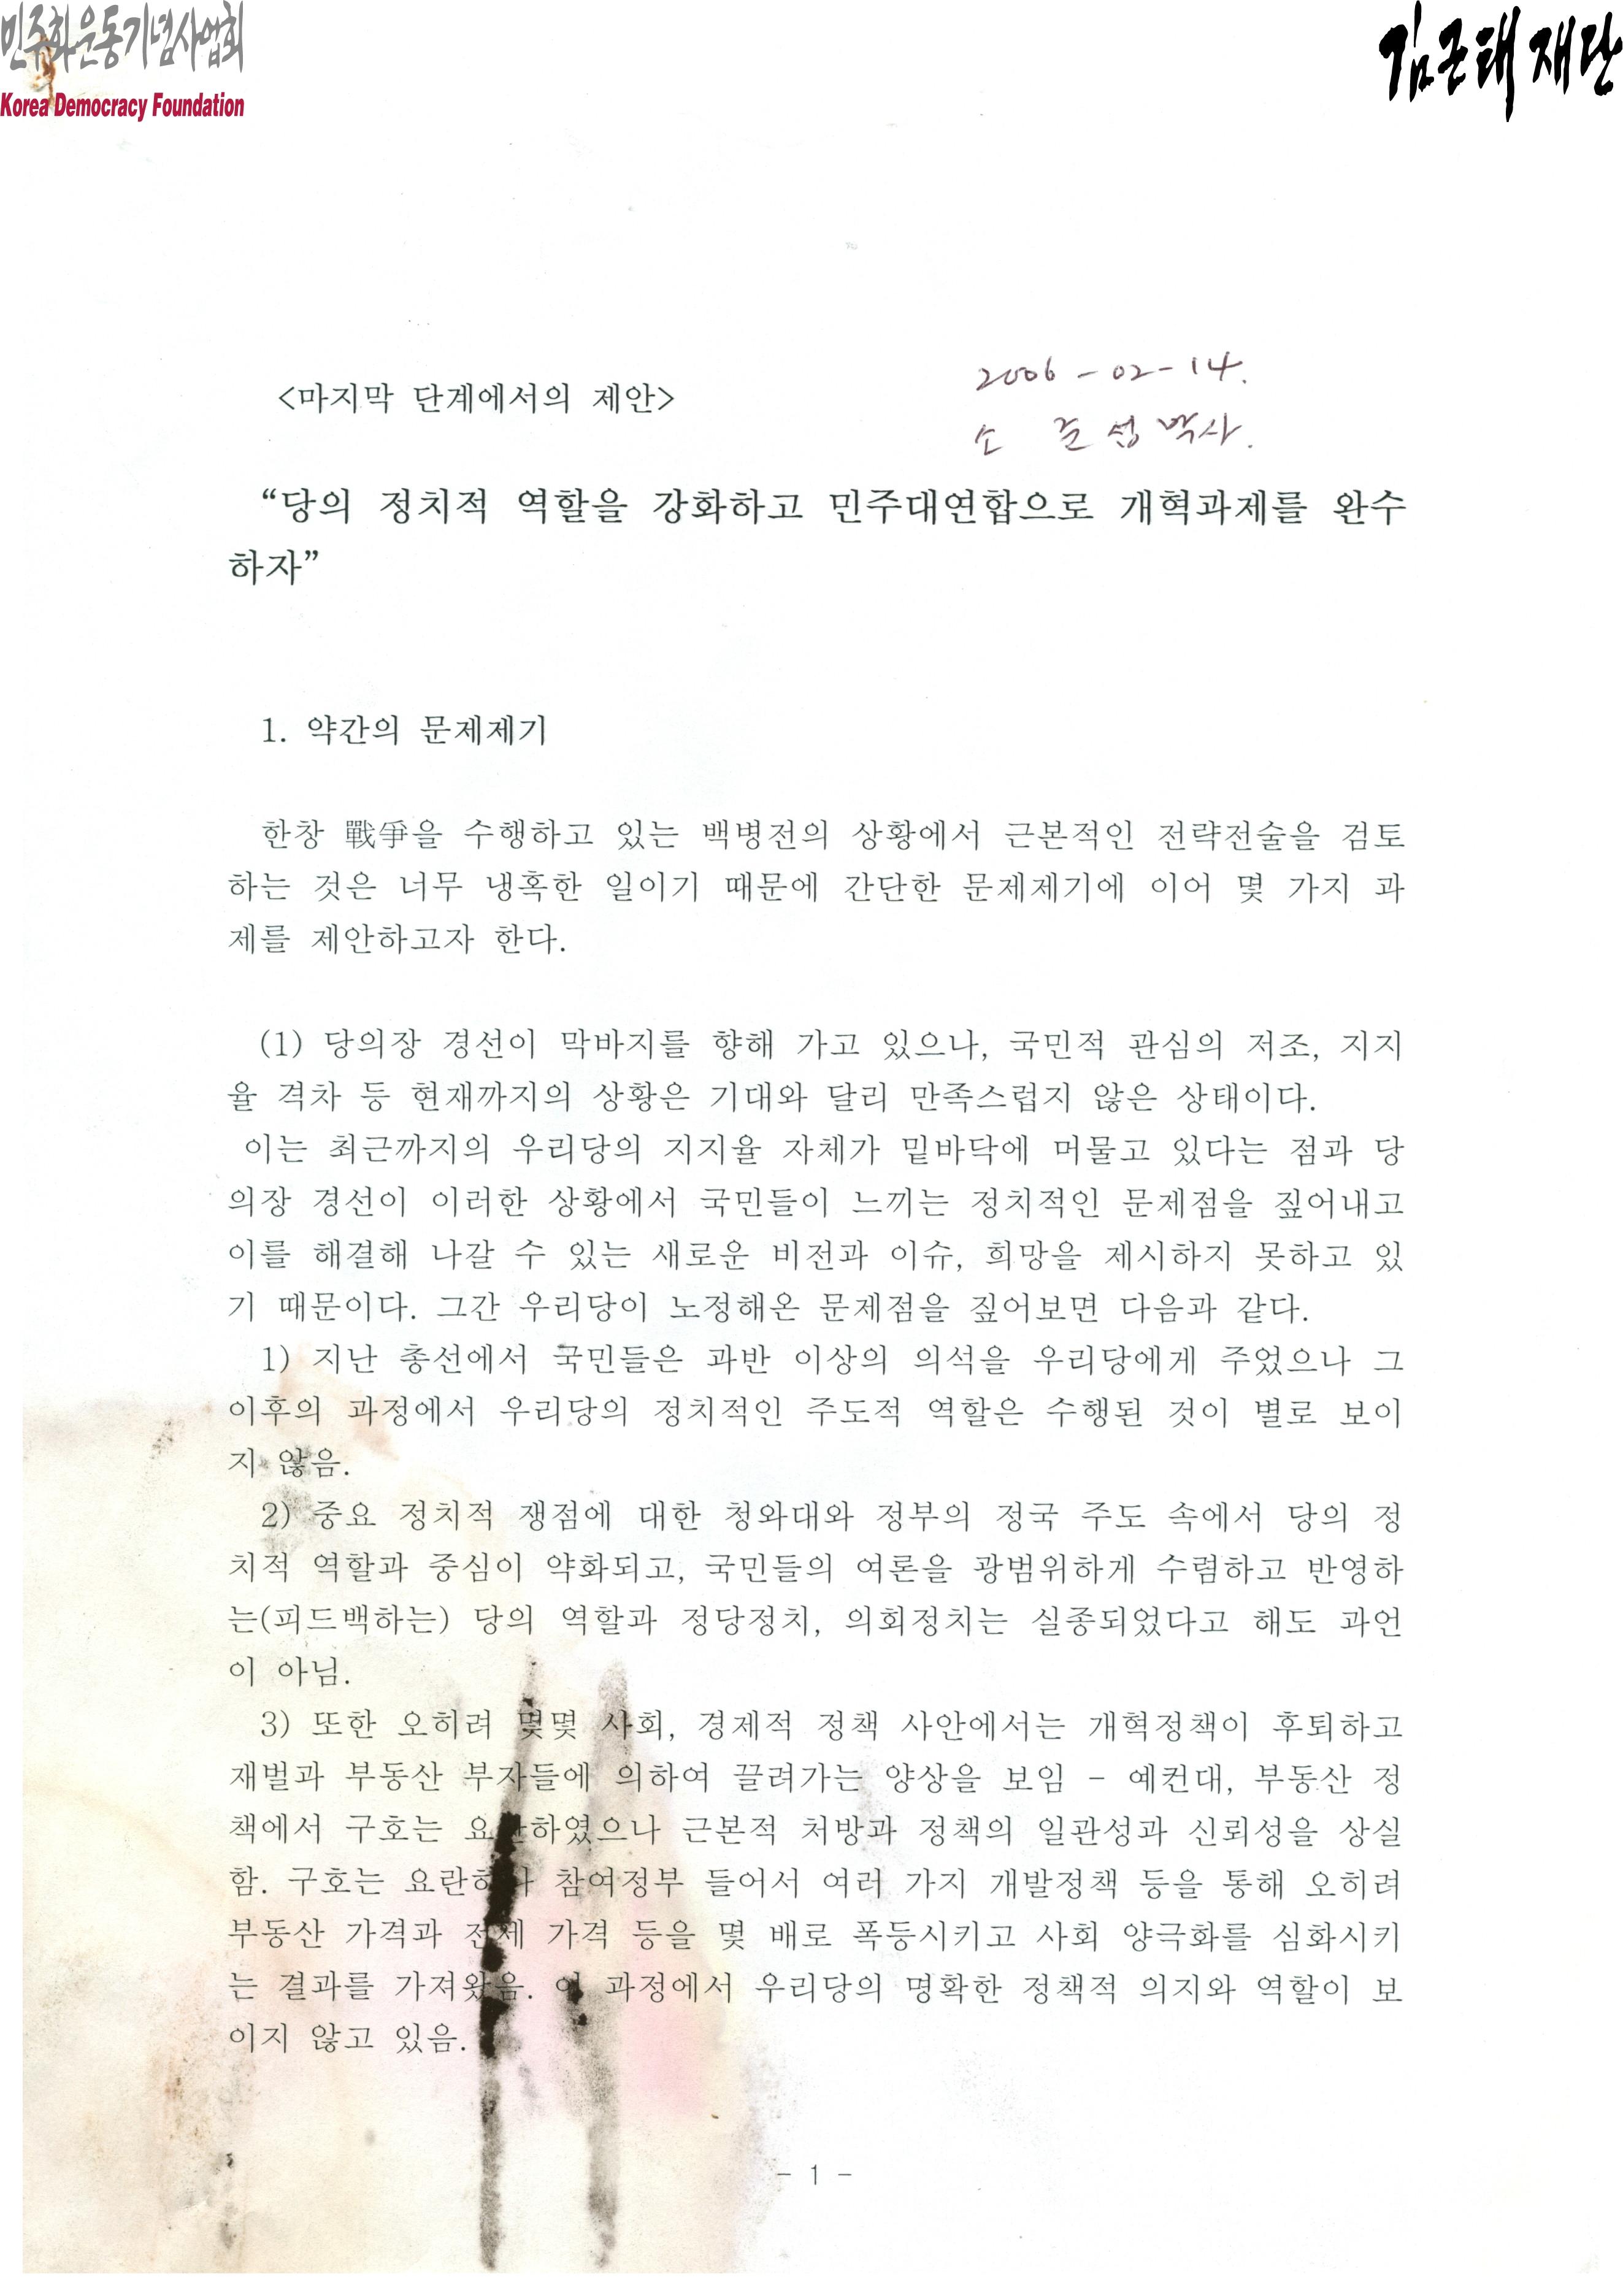 민주화운동기념사업회
Korea Democracy Foundation
김근태 재단
2006-02-14.
<마지막 단계에서의 제안>
소 준섭 박사.
“당의 정치적 역할을 강화하고 민주대연합으로 개혁과제를 완수
하자”
1. 약간의 문제제기
한창 戰爭을 수행하고 있는 백병전의 상황에서 근본적인 전략전술을 검토
하는 것은 너무 냉혹한 일이기 때문에 간단한 문제제기에 이어 몇 가지 과
제를 제안하고자 한다.
(1) 당의장 경선이 막바지를 향해 가고 있으나, 국민적 관심의 저조, 지지
율 격차 등 현재까지의 상황은 기대와 달리 만족스럽지 않은 상태이다.
이는 최근까지의 우리당의 지지율 자체가 밑바닥에 머물고 있다는 점과 당
의장 경선이 이러한 상황에서 국민들이 느끼는 정치적인 문제점을 짚어내고
이를 해결해 나갈 수 있는 새로운 비전과 이슈, 희망을 제시하지 못하고 있
기 때문이다. 그간 우리당이 노정해온 문제점을 짚어보면 다음과 같다.
1) 지난 총선에서 국민들은 과반 이상의 의석을 우리당에게 주었으나 그
이후의 과정에서 우리당의 정치적인 주도적 역할은 수행된 것이 별로 보이
지 않음.
2) 중요 정치적 쟁점에 대한 청와대와 정부의 정국 주도 속에서 당의 정
치적 역할과 중심이 약화되고, 국민들의 여론을 광범위하게 수렴하고 반영하
는(피드백하는) 당의 역할과 정당정치, 의회정치는 실종되었다고 해도 과언
이 아님.
3) 또한 오히려 몇몇 사회, 경제적 정책 사안에서는 개혁정책이 후퇴하고
재벌과 부동산 부자들에 의하여 끌려가는 양상을 보임 - 예컨대, 부동산 정
책에서 구호는 요란하였으나 근본적 처방과 정책의 일관성과 신뢰성을 상실
함. 구호는 요란하나 참여정부 들어서 여러 가지 개발정책 등을 통해 오히려
부동산 가격과 전세 가격 등을 몇 배로 폭등시키고 사회 양극화를 심화시키
는 결과를 가져왔음. 이 과정에서 우리당의 명확한 정책적 의지와 역할이 보
이지 않고 있음.
- 1 -